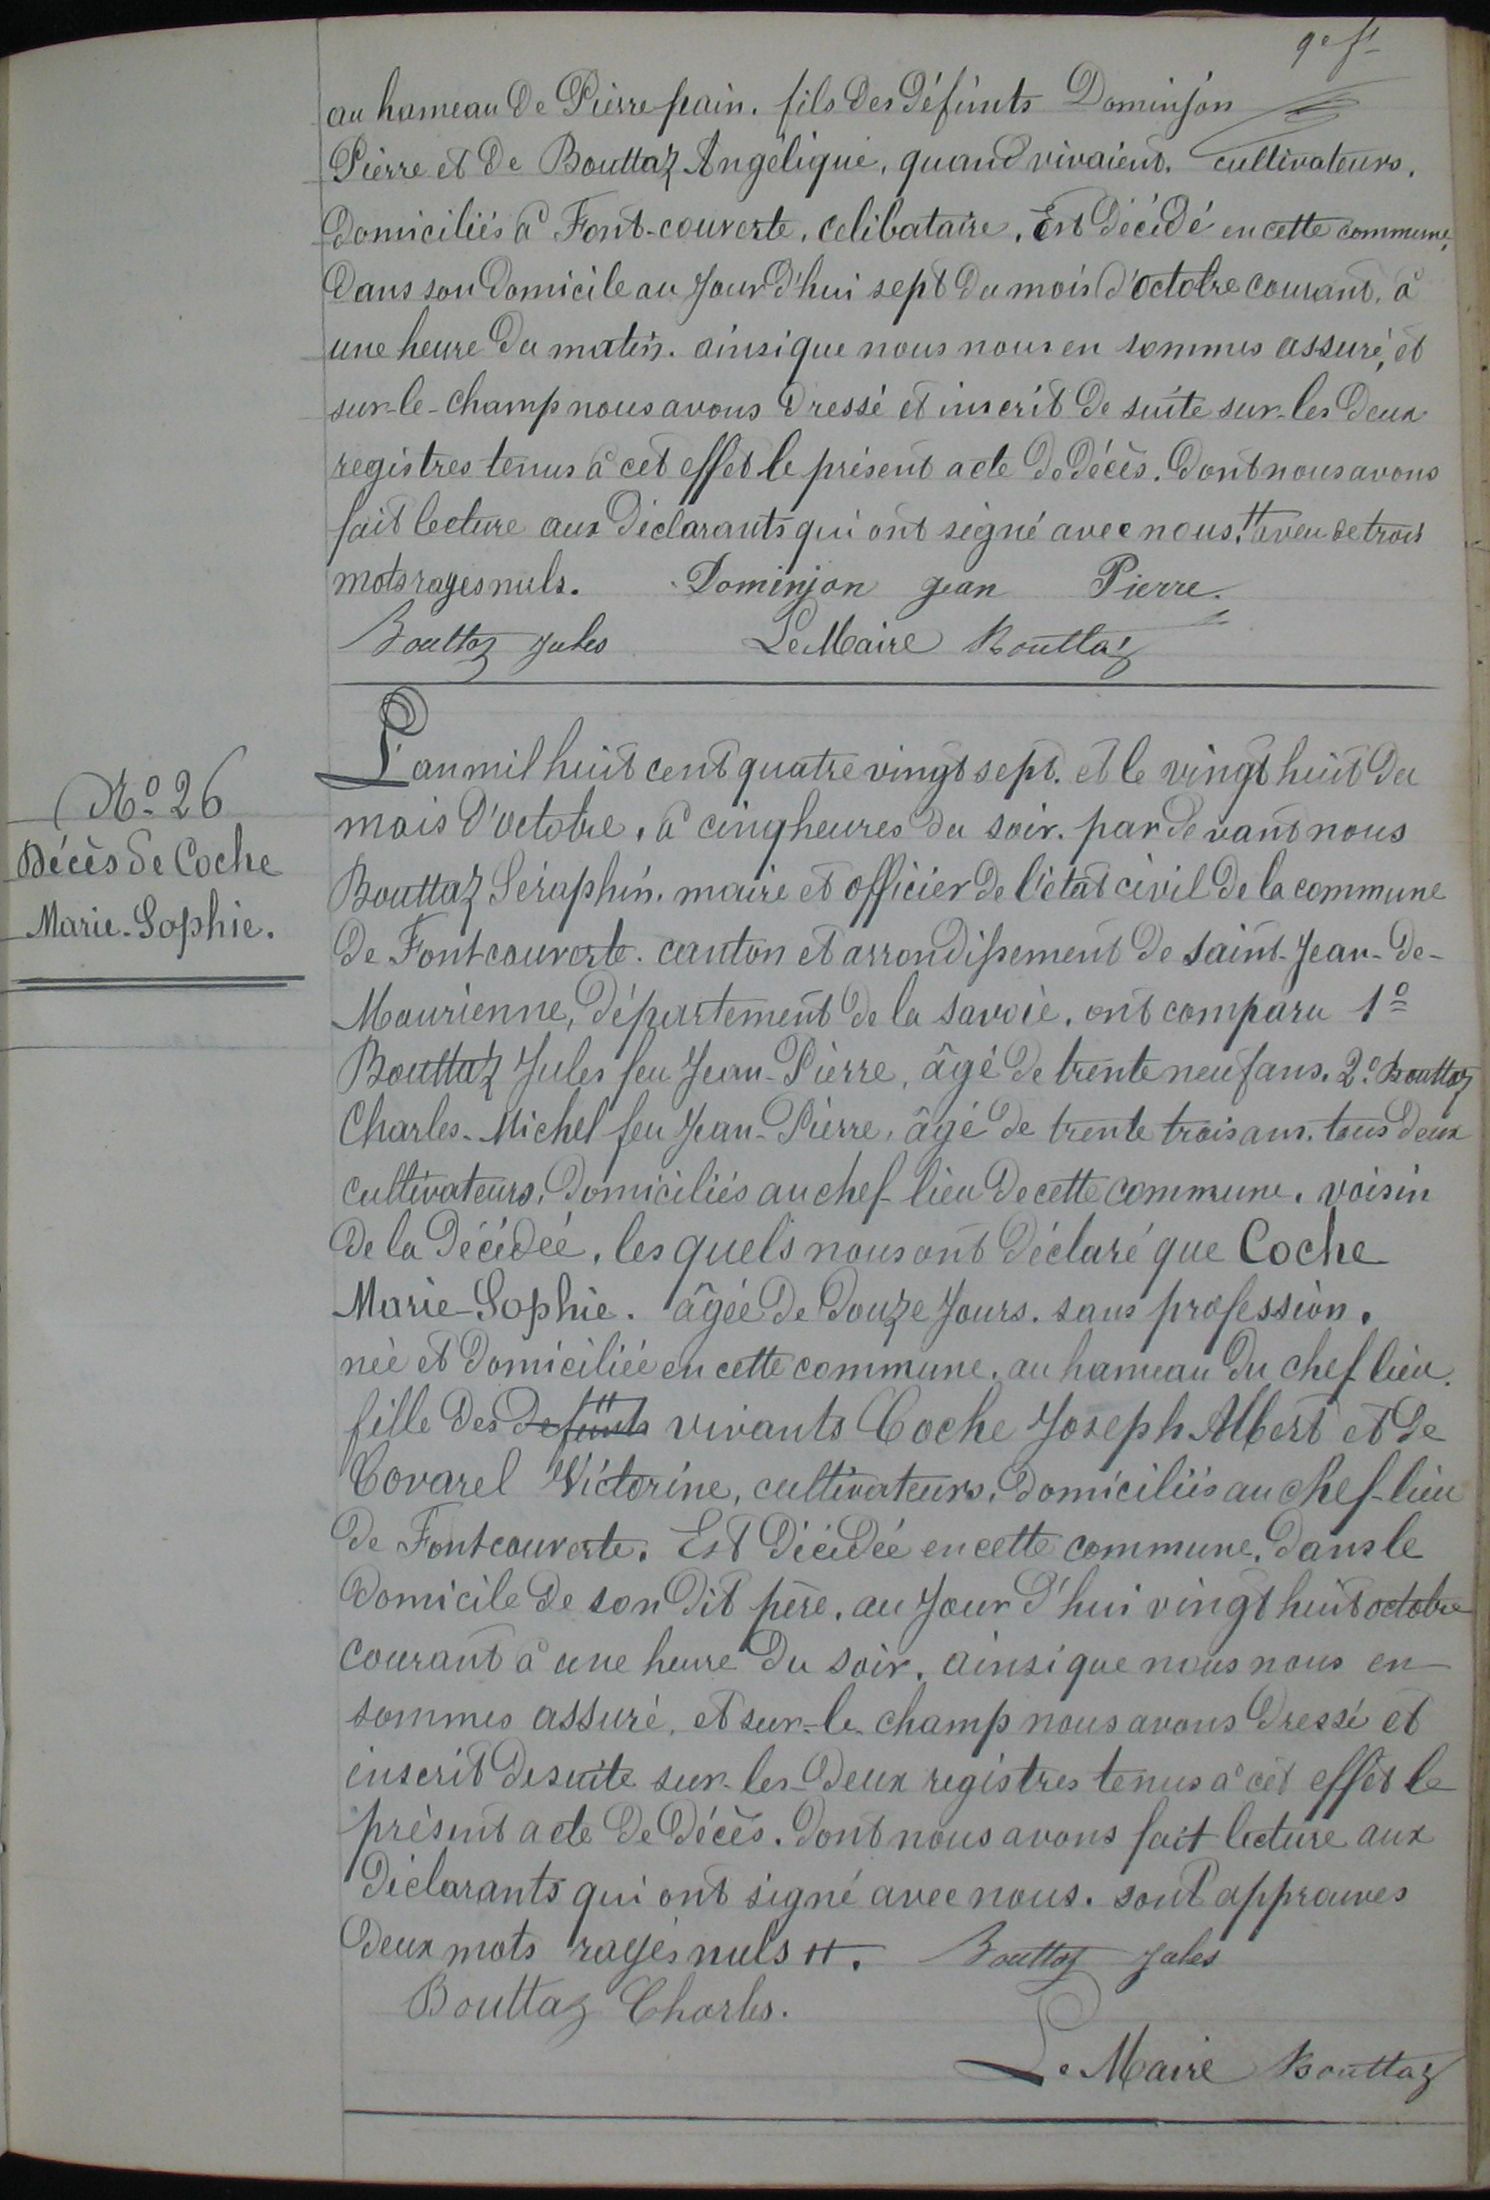 9e ft
au hameau de Pierrepain. fils des défunts Dominjon
Pierre et de Bouttaz Angélique, quand vivaient. cultivateurs.
domiciliés à Font-couverte, celibataire. Est décédé en cette commune,
dans son domicile au jour d'hui sept du mois d'octobre courant, à
une heure du matin. ainsi que nous nous en sommes assuré, et
sur-le-champ nous avons dressé et inscrit de suite sur-les deux
registres tenus à cet effet le présent acte de décès. dont nous avons
fait lecture aux déclarants qui ont signé avec nous. aveu de trois
mots rayés nuls. Dominjon jean Pierre.
Bouttaz jules Le Maire Bouttaz
L'an mil huit cent quatre vingt sept. et le vingt huit du
mois d'octobre, à cinq heures du soir. par devant nous
Bouttaz Séraphin. maire et officier de l'état civil de la commune
de Fontcouverte. canton et arrondissement de Saint-Jean-de-
Nº 26
Décès de Coche
Marie-Sophie.
Maurienne, département de la savoie, ont comparu 1º
Bouttaz Jules feu Jean-Pierre, âgé de trente neuf ans. 2º Bouttaz
Charles-Michel feu Jean-Pierre, âgé de trente trois ans. tous deux
cultivateurs, domiciliés au chef-lieu de cette commune. voisin
de la décédée, les quels nous ont déclaré que Coche
Marie-Sophie. âgée de douze jours. sans profession.
née et domiciliée en cette commune, au hameau du chef lieu.
fille des defunts vivants Coche Joseph Albert et de
Covarel Victorine, cultivateurs, domiciliés au chef-lieu
de Fontcouverte. Est décédée en cette commune, dans le
domicile de son dit père, au jour d'hui vingt huit octobre
courant à une heure du soir. ainsi que nous nous en
sommes assuré, et sur-le-champ nous avons dressé et
inscrit de suite sur-les-deux registres tenus à cet effet le
présent acte de décès. dont nous avons fait lecture aux
déclarants qui ont signé avec nous. sont approuves
deux mots rayés nuls ++. Bouttaz jules
Bouttaz Charles.
Le Maire Bouttaz